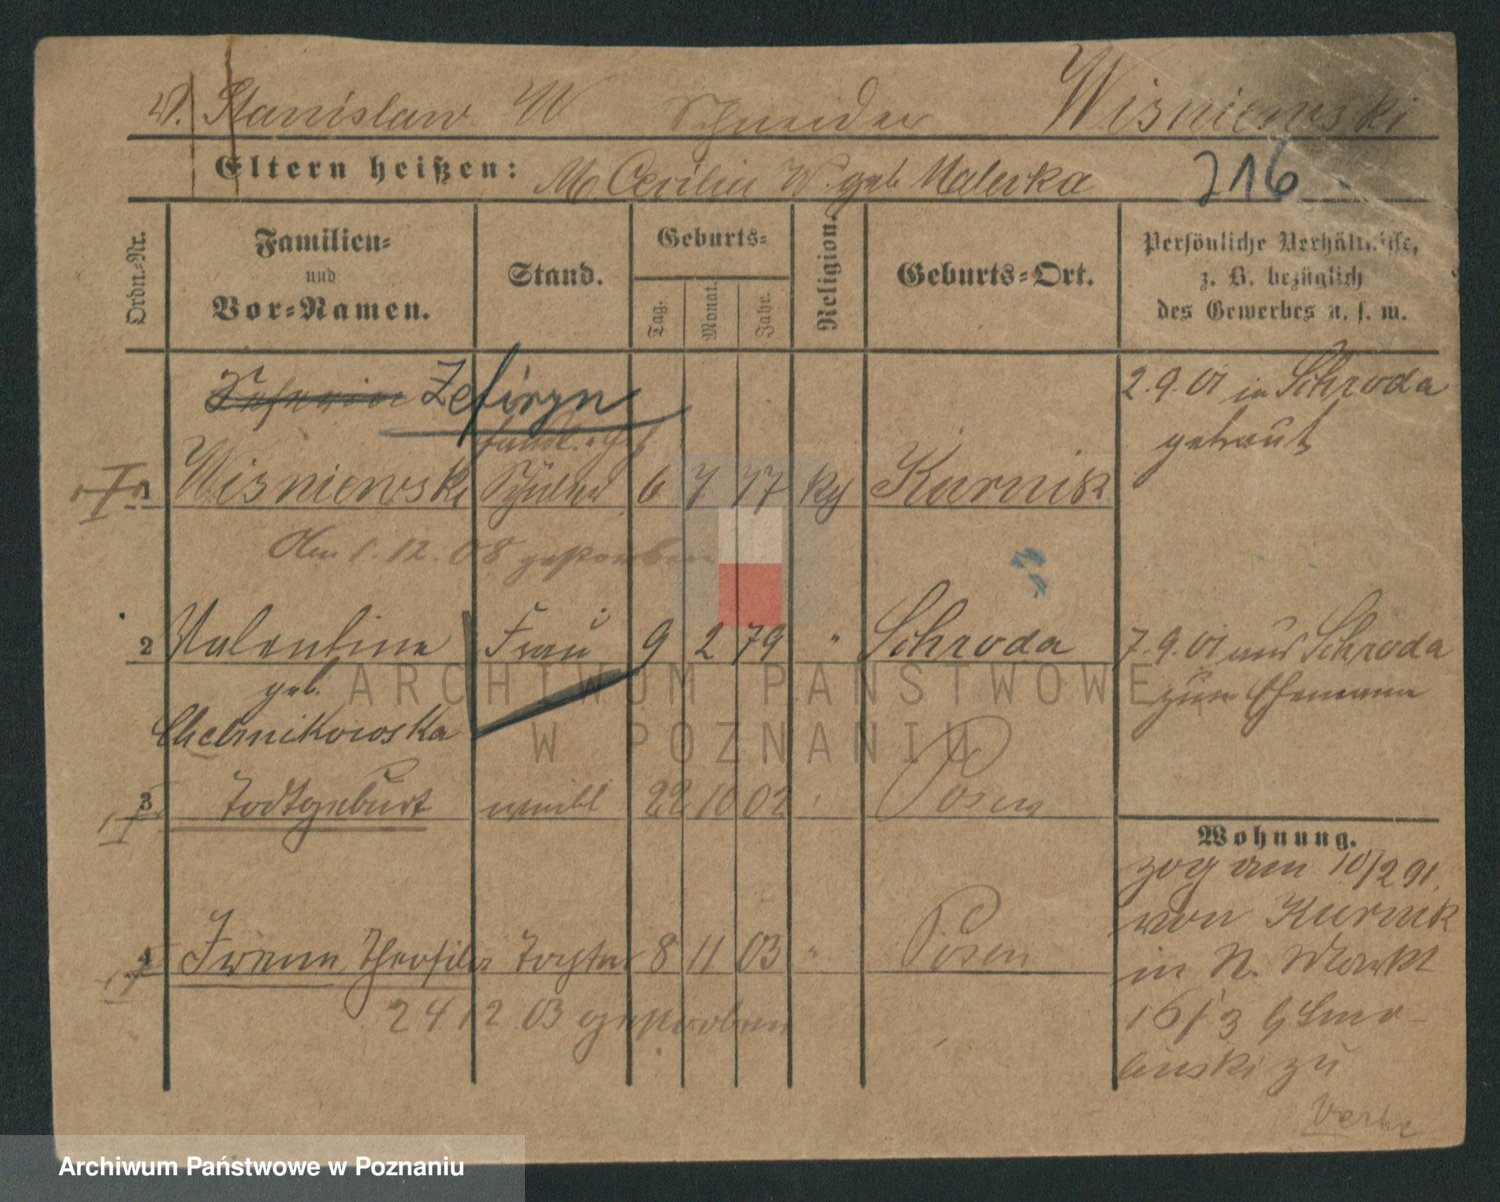 V. Stanislaw W Schneider Wisniewski
Eltern heißen: M. Cecilie W. geb Malerka
716
Ordn.-Nr.
Familien-
und
Vor-Namen.
Stand.
Geburts-
Tag.
Monat.
Jahr.
Religion.
Geburts-Ort.
Persönliche Verhältnisse,
z. B. bezüglich
des Gewerbes u. s. w.
Zefiryn
1 Wisniewski Schüler 6 7 77 Kurnik
2.9.01 in Schroda
getraut
Am 1.12.08 gestorben
2 Valentine Frau 9 2 79 " Schroda
geb.
7.9.01 aus Schroda
zum Ehemann
3 Todtgeburt weibl 22 10 02 Posen
4 Irene Theofila Tochter 8 11 03 " Posen
24 12 03 gestorben
Wohnung.
zog am 10/2 91.
von Kurnik
in N. Markt
16/3
zu
ARCHIWUM PAŃSTWOWE
W POZNANIU
Archiwum Państwowe w Poznaniu